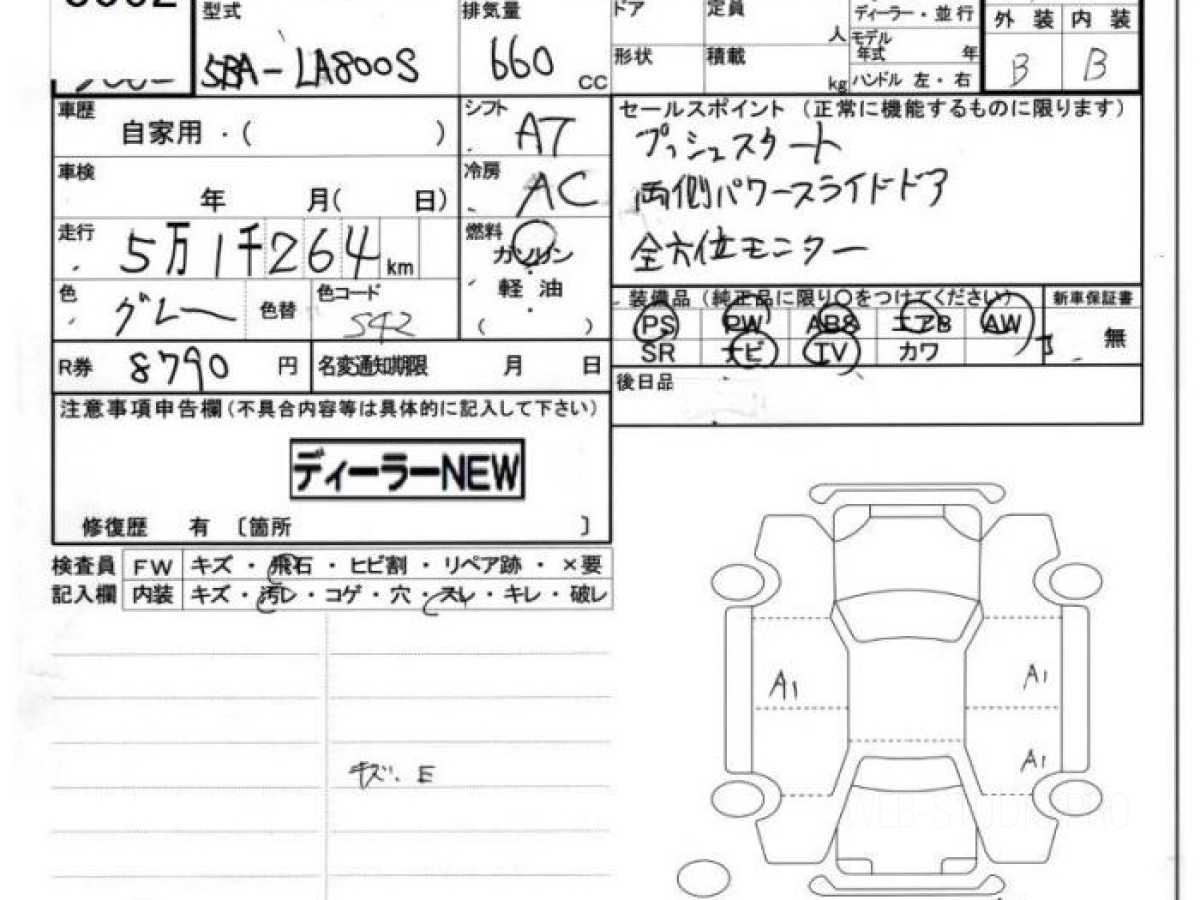 型式 排気量 ドア 定員 人 ディーラー・並行 外装 内装
5BA-LA800S 660 CC 形状 積載 kg モデル年式 年 B B
ハンドル 左・右
車歴 自家用・( ) シフト AT セールスポイント (正常に機能するものに限ります)
プッシュスタート
車検 年 月( 日) 冷房 AC 両側パワースライドドア
走行 5万1千264 km 燃料 ガソリン 全方位モニター
軽油
( )
色 グレー 色替 色コード S42 装備品 (純正品に限り○をつけてください) 新車保証書
PS PW ABS エアB AW 無
R券 8790 円 名変通知期限 月 日 SR ナビ TV カワ
後日品
注意事項申告欄(不具合内容等は具体的に記入して下さい)
ディーラーNEW
修復歴 有 〔箇所 〕
検査員 FW キズ・飛石・ヒビ割・リペア跡・×要
記入欄 内装 キズ・汚レ・コゲ・穴・スレ・キレ・破レ
A1 A1
キズ、E A1
WEB-STUDIO.PRO